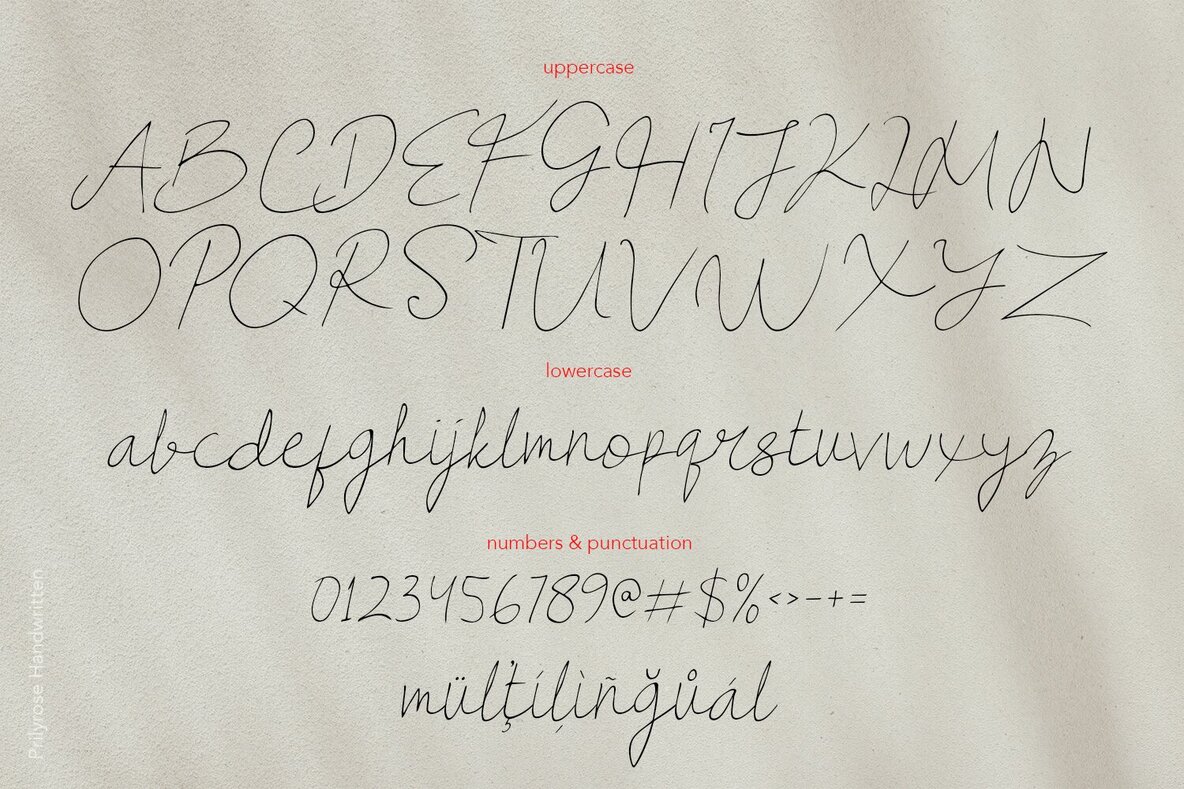 uppercase
ABCDEFGHIJKLMN
OPQRSTUVWXYZ
lowercase
abcdefghijklmnopqrstuvwxyz
numbers & punctuation
0123456789@#$%<>-+=
mülťíļìñğůál
Prilyrose Handwritten